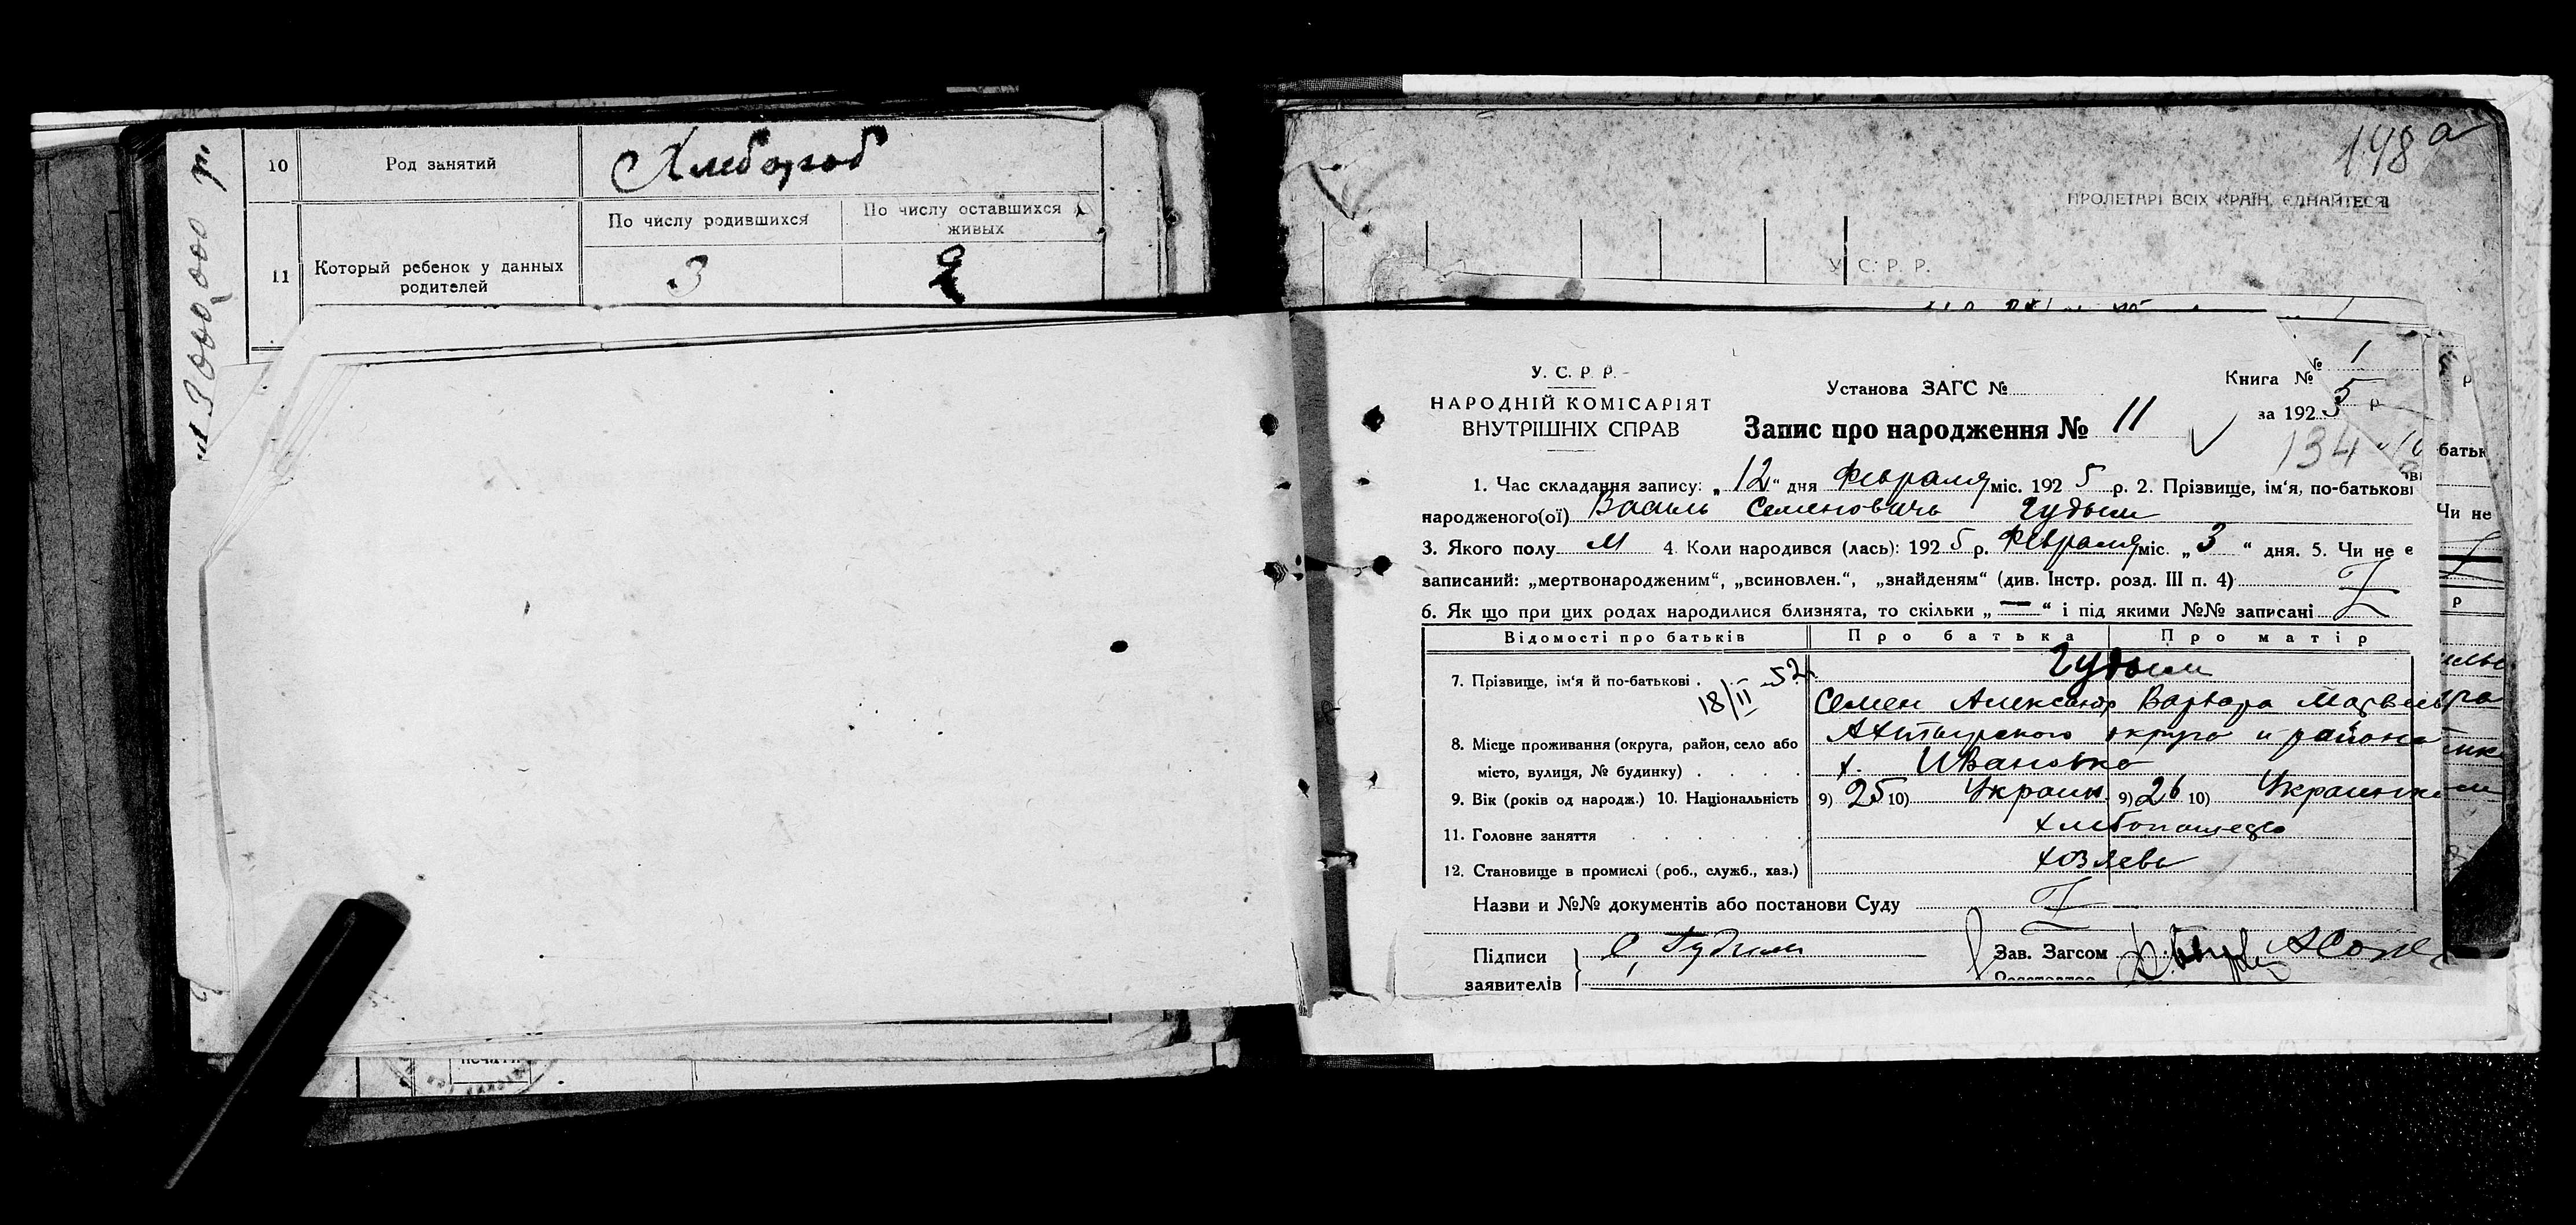 10 Род занятий Хлебороб
По числу родившихся По числу оставшихся живых
11 Который ребенок у данных родителей 3 2
148 а
ПРОЛЕТАРІ ВСІХ КРАЇН, ЄДНАЙТЕСЯ
У. С. Р. Р.
У. С. Р. Р.
НАРОДНІЙ КОМІСАРІЯТ
ВНУТРІШНІХ СПРАВ
Установа ЗАГС №
Книга № 1
за 1925 р
Запис про народження № 11
134
1. Час складання запису: „12“ дня Февраля міс. 1925 р. 2. Прізвище, ім'я, по-батькові
народженого(ої) Василь Семеновичь Гудым
3. Якого полу М 4. Коли народився (лась): 1925 р. Февраля міс. „3“ дня. 5. Чи не є
записаний: „мертвонародженим“, „всиновлен.“, „знайденям“ (див. Інстр. розд. III п. 4)
6. Як що при цих родах народилися близнята, то скільки „—“ і під якими №№ записані
Відомості про батьків Про батька Про матір
7. Прізвище, ім'я й по-батькові Гудым
18/II 52
Семен Александр Варвара Матвеев
8. Місце проживання (округа, район, село або Ахтырского округа и района
місто, вулиця, № будинку) х. Ивановка
9. Вік (років од народж.) 10. Національність 9) 25 10) Украин. 9) 26 10) Украинка
11. Головне заняття хлебопашество
12. Становище в промислі (роб., служб., хаз.) хозяева
Назви и №№ документів або постанови Суду
Підписи С. Гудим Зав. Загсом
заявителів